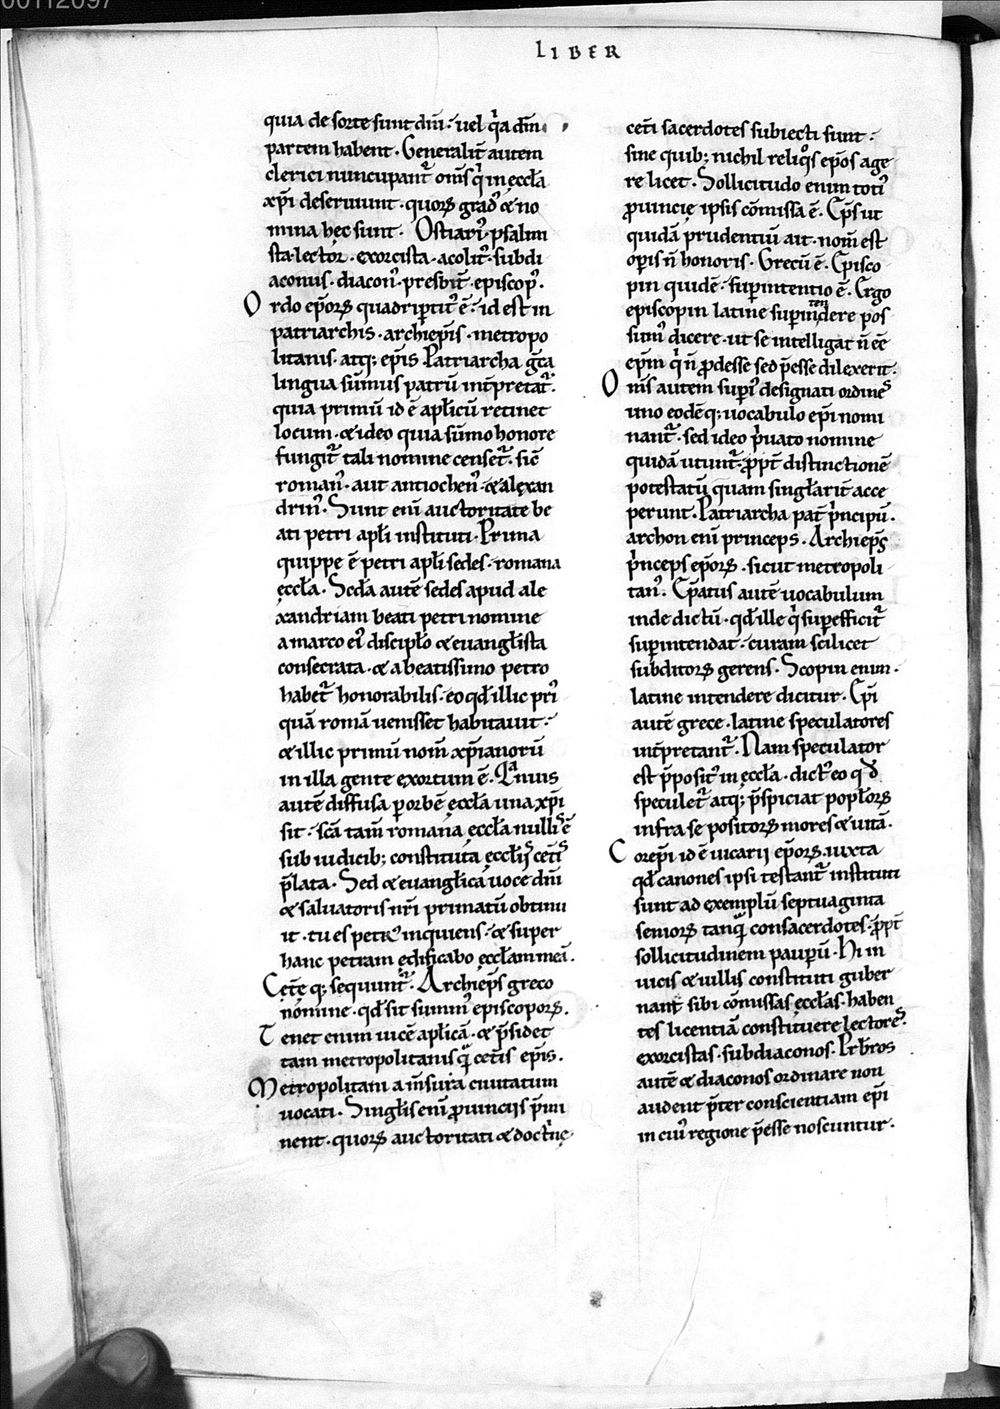 00112097
LIBER
quia de sorte sunt dñi. uel q̇a dñm
partem habent. Generalit̃ autem
clerici nuncupant̃ om̃s q̇ in eccƚa
xp̃i deseruiunt. quoꝝ grad᾽ & no
mina hec sunt. Ostiari᾽. psalmi
sta. lector. exorcista. acolit᾽. subdi
aconus. diacon᾽. presbit̃. episcop᾽.
Ordo ep̃oꝝ quadriꝑtit᾽ ẽ. id est in
patriarchis. archiep̃is. metropo
litanis. atq; ep̃is. Patriarcha g̃ca
lingua sũmus patrũ int̃pretat̃.
quia primũ id ẽ apƚicũ retinet
locum. & ideo quia sũmo honore
fungit̃ tali nomine censet̃. sic̃
roman᾽. aut antiochen᾽. & alexan
drin᾽. Sunt eni᾽ auctoritate be
ati petri apƚi instituti. Prima
quippe ẽ petri apƚi sedes. romana
eccƚa. Scƌa autẽ sedes apud ale
xandriam beati petri nomine
a marco ei᾽ discipƚo & euangƚista
consecrata. & a beatissimo petro
habet̃ honorabilis. eo qƌ illic pri᾽
quã romã uenisset habitauit.
& illic primũ nom̃ xp̃ianorũ
in illa gente exortum ẽ. Qãuis
autẽ diffusa ꝑ orbẽ eccƚa una xp̃i
sit. sc̃a tam̃ romana eccƚa nulli᾽ ẽ
sub iudicib; constituta eccƚijs cet̃is
p̃lata. Sed & euangƚica uoce dñi
& saluatoris nr̃i primatũ obtinu
it. tu es petr᾽ inquiens. & super
hanc petram ędificabo eccƚam meã.
Cet̃ę q; sequunt̃. Archiep̃s greco
nomine. qƌ sit summ᾽ episcopoꝝ.
Tenet enim uicẽ apƚicã. & p̃sidet
tam metropolitanis q̃ cet̃is ep̃is.
Metropolitani a m̃sura ciuitatum
uocati. Singƚis eni᾽ ꝓuincijs p̃mi
nent. quoꝝ auctoritati & doct̃nę
cet̃i sacerdotes subiecti sunt.
sine quib; nichil reliq᾽s ep̃os age
re licet. Sollicitudo enim toti᾽
ꝓuincię ipsis cõmissa ẽ. Ep̃s ut
quidã prudentiũ ait. nom̃ est
opis ñ honoris. Grecũ ẽ. Episco
pin quidẽ. suꝑintentio ẽ. Ergo
episcopin latine suꝑintendere pos
sum᾽ dicere. ut se intelligat ñ eẽ
ep̃m q̇ ñ ꝓdesse sed p̃esse dilexerit.
Om̃s autem suꝑi᾽ designati ordines
uno eodẽq; uocabulo ep̃i nomi
nant̃. sed ideo ṗuato nomine
quidã utunt̃. ꝓpt̃ distinctionẽ
potestatũ quam singƚarit̃ acce
perunt. Patriarcha pat̃ ṗncipũ.
archon eni᾽ princeps. Archiep̃s
ṗnceps ep̃oꝝ. sicut metropoli
tan᾽. Ep̃atus autẽ uocabulum
inde dictũ. qƌ ille q̇ suꝑefficit̃
suꝑintendat. curam scilicet
subditoꝝ gerens. Scopin enim.
latine intendere dicitur. Ep̃i
autẽ grece. latine speculatores
int̃pretant̃. Nam speculator
est p̃posit᾽ in eccƚa. dict᾽ eo qƌ
speculet̃ atq; p̃spiciat popƚoꝝ
infra se positoꝝ mores & uitã.
Corep̃i id ẽ uicarij ep̃oꝝ. iuxta
qƌ canones ipsi testant̃ instituti
sunt ad exemplũ septuaginta
senioꝝ tanq̃ consacerdotes. ꝓpt̃
sollicitudinem pauꝑũ. Hi in
uicis & uillis constituti guber
nant sibi cõmissas eccƚas. haben
tes licentiã constituere lectores.
exorcistas. subdiaconos. Prƀros
autẽ & diaconos ordinare non
audent p̃ter conscientiam ep̃i
in cui᾽ regione p̃esse noscuntur.